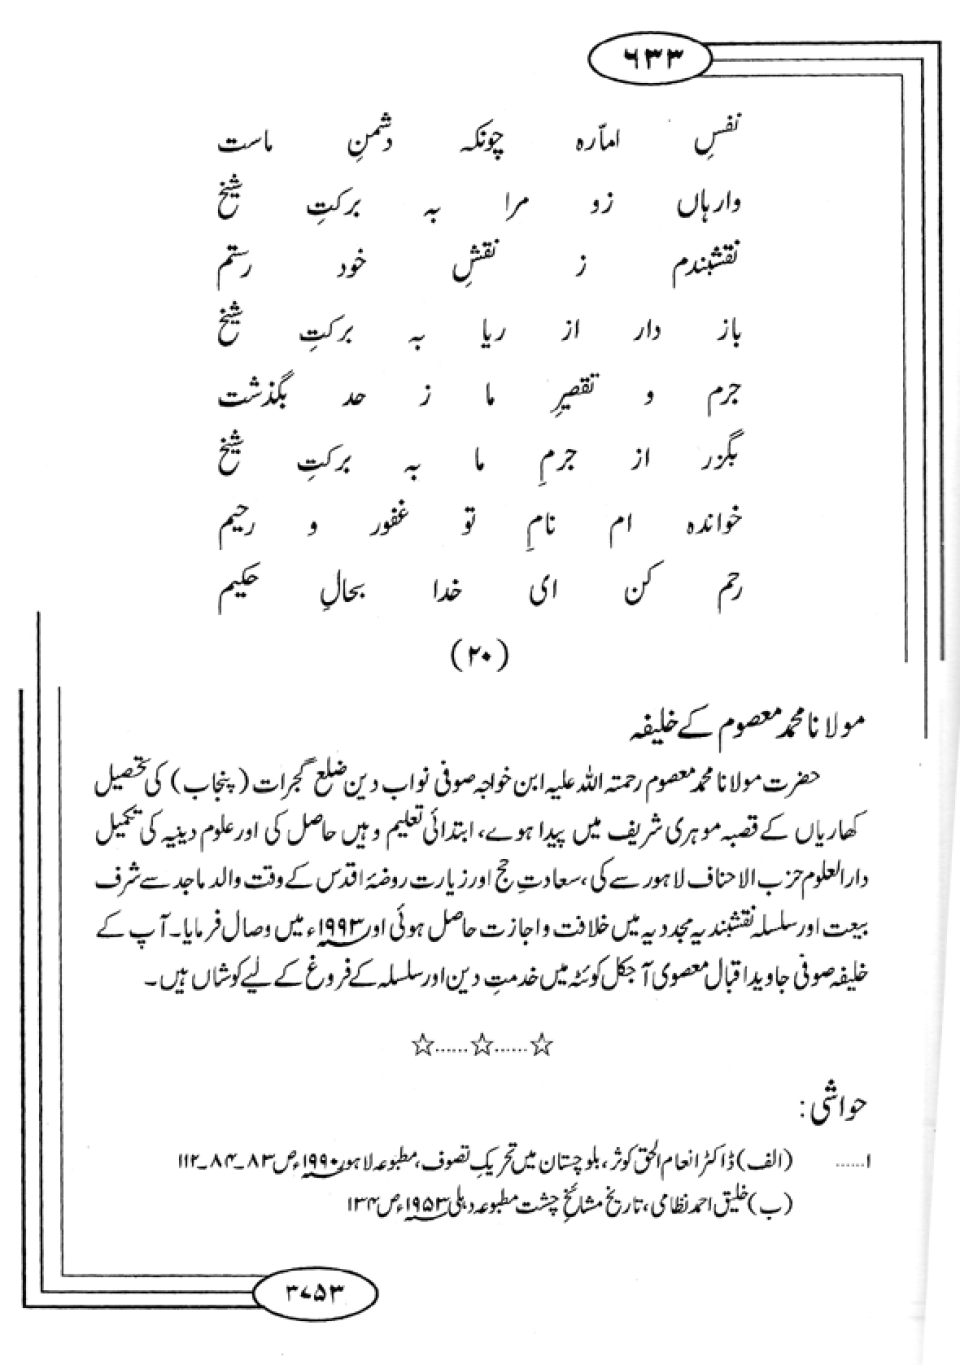 ۶۳۳
نفسِ امّارہ چونکہ دشمنِ ماست
وارہاں زو مرا بہ برکتِ شیخ
نقشبندم ز نقشِ خود رستم
باز دار از ریا بہ برکتِ شیخ
جرم و تقصیرِ ما ز حد بگذشت
بگزر از جرمِ ما بہ برکتِ شیخ
خواندہ ام نامِ تو غفور و رحیم
رحم کن ای خدا بحالِ حکیم
(۲۰)
مولانا محمد معصوم کے خلیفہ
حضرت مولانا محمد معصوم رحمتہ اللہ علیہ ابن خواجہ صوفی نواب دین ضلع گجرات (پنجاب) کی تحصیل
کھاریاں کے قصبہ موہری شریف میں پیدا ہوے، ابتدائی تعلیم وہیں حاصل کی اور علوم دینیہ کی تکمیل
دارالعلوم حزب الاحناف لاہور سے کی، سعادتِ حج اور زیارت روضۂ اقدس کے وقت والد ماجد سے شرف
بیعت اور سلسلہ نقشبندیہ مجددیہ میں خلافت و اجازت حاصل ہوئی اور ۱۹۹۳ء میں وصال فرمایا۔ آپ کے
خلیفہ صوفی جاوید اقبال معصوی آجکل کوئٹہ میں خدمتِ دین اور سلسلہ کے فروغ کے لیے کوشاں ہیں۔
☆......☆......☆
حواشی:
۱...... (الف) ڈاکٹر انعام الحق کوثر، بلوچستان میں تحریکِ تصوف، مطبوعہ لاہور ۱۹۹۰ء ص ۸۳۔۸۴۔۱۱۲
(ب) خلیق احمد نظامی، تاریخ مشائخِ چشت مطبوعہ دہلی ۱۹۵۳ء ص ۱۳۴
۳۷۵۳